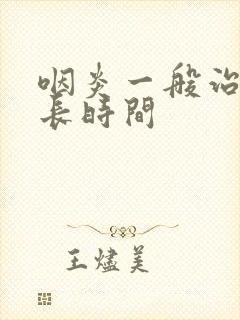 咽炎一般治
長時間
王燼美